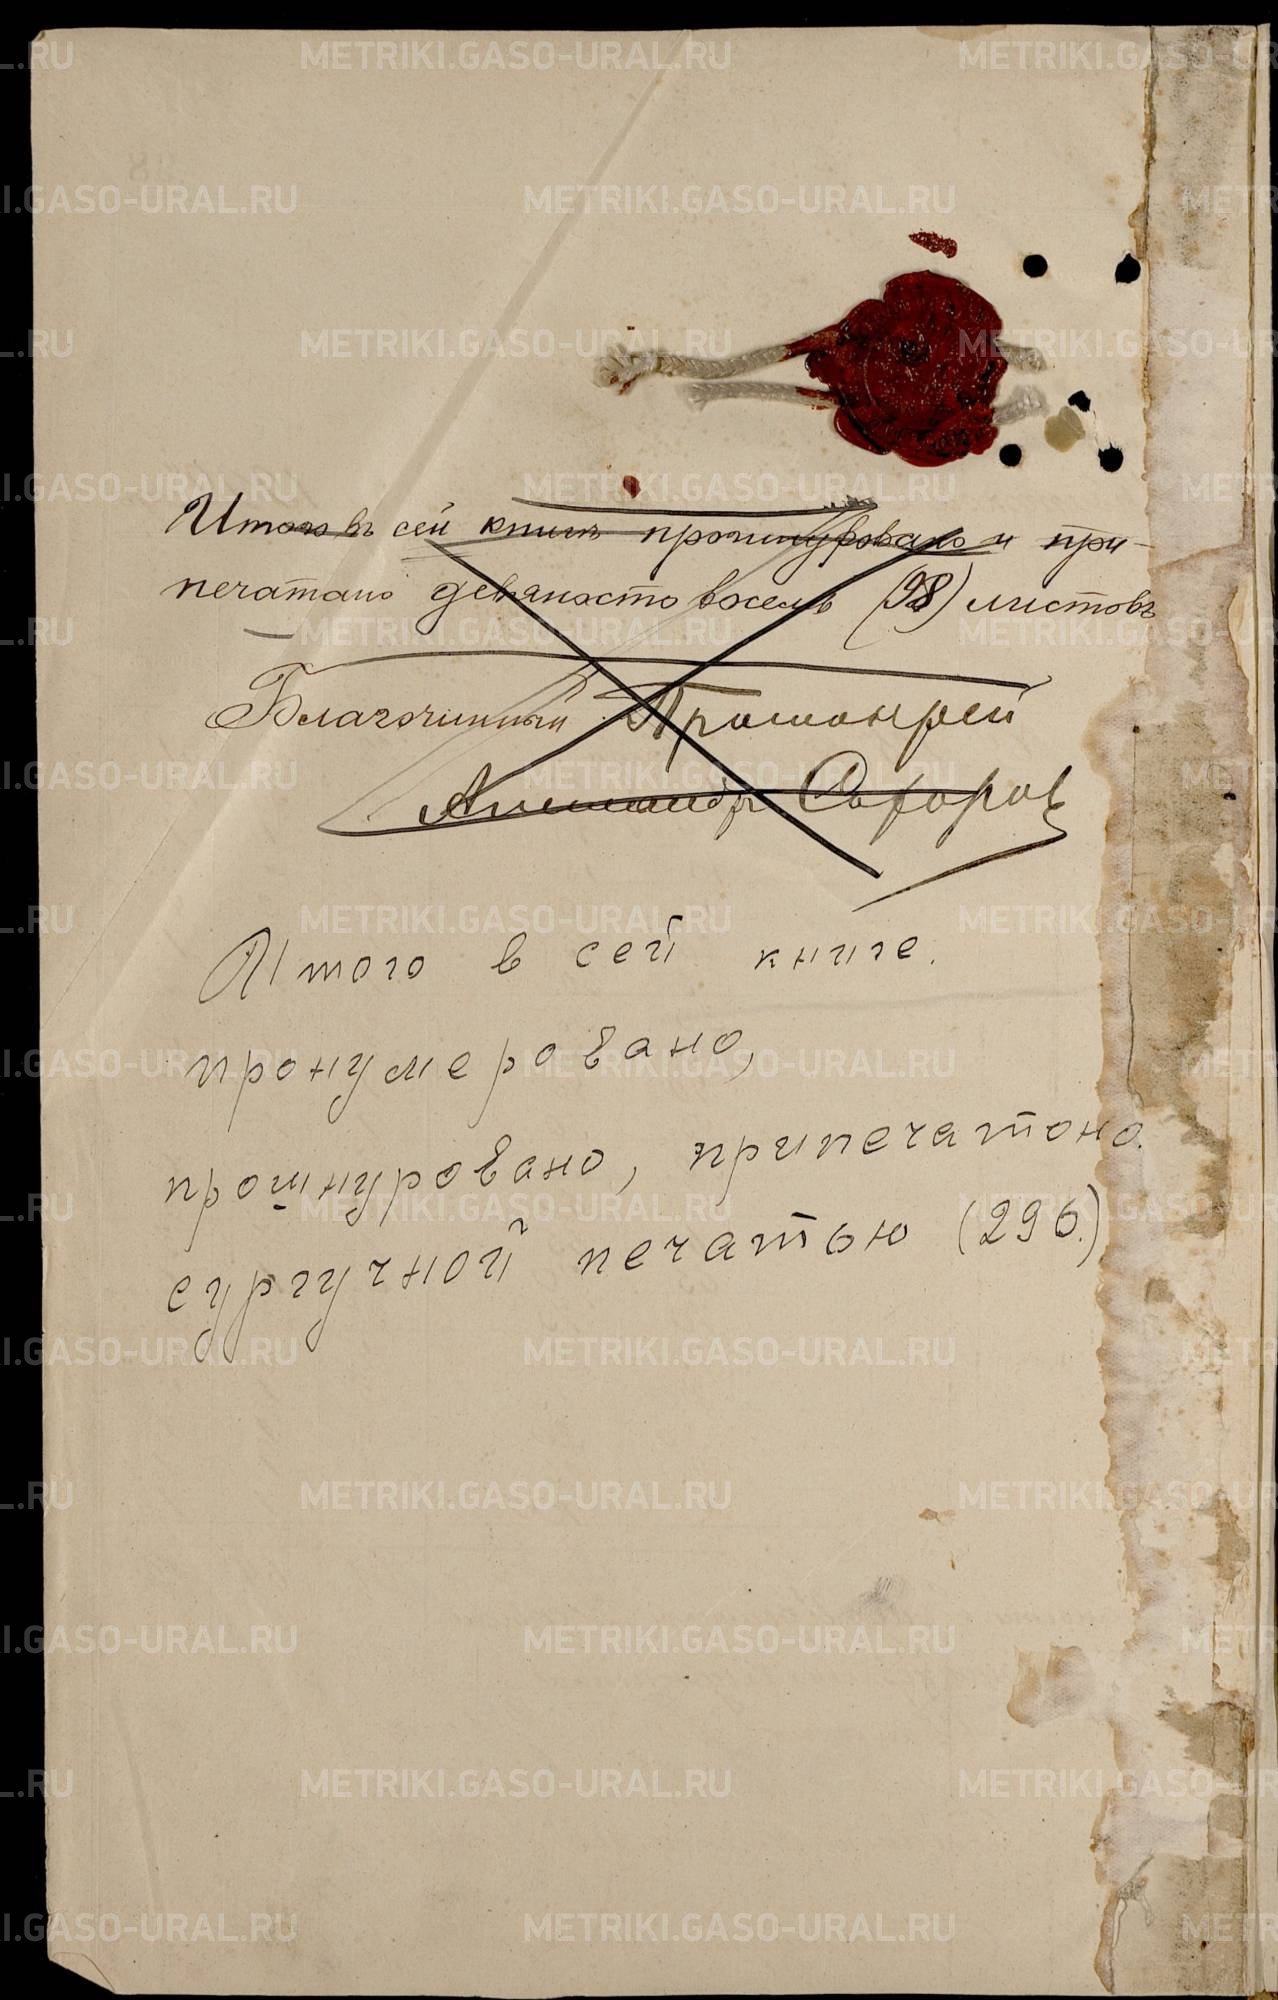 Итого въ сей книгѣ прошнуровано и при-
печатано девяносто восемь (98) листовъ
Благочинный Протоиерей
Александръ
Итого в сей книге.
пронумеровано,
прошнуровано, припечатоно.
сургучной печатью (296.)
METRIKI.GASO-URAL.RU